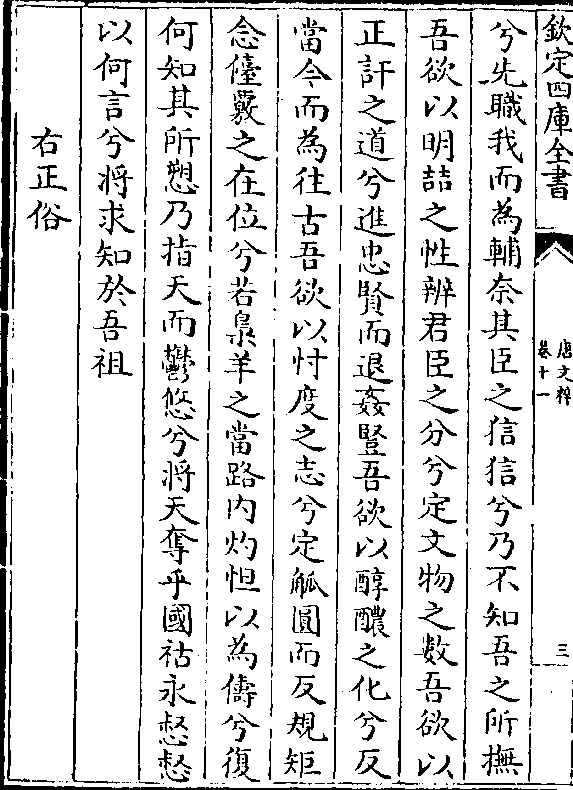 欽定四庫全書
唐文粹
卷十一
三
兮先職我而為輔奈其臣之狺狺兮乃不知吾之所撫
吾欲以明喆之性辨君臣之分兮定文物之數吾欲以
正訐之道兮進忠賢而退姦豎吾欲以醇醲之化兮反
當今而為往古吾欲以忖度之志兮定觚圓而反規矩
念儓覈之在位兮若梟羊之當路内灼怛以為儔兮復
何知其所愬乃指天而鬱悠兮將天奪乎國祜永愁愁
以何言兮將求知於吾祖
右正俗